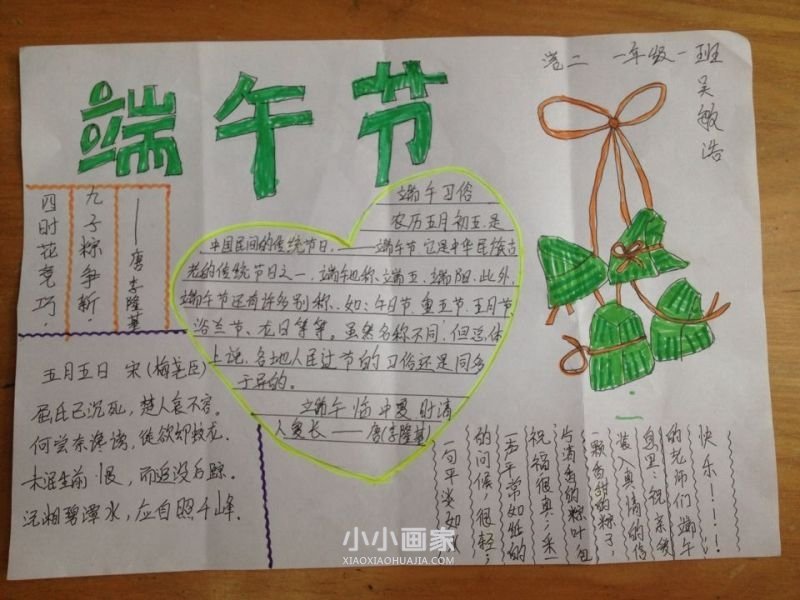 端午节
港二 一年级一班
吴敏浩
四时花竞巧.
九子粽争新.
——唐.李隆基
端午习俗
农历五月初五.是
中国民间的传统节日.——端午节 它是中华民族古
老的传统节日之一，端午也称.端五.端阳.此外.
端午节还有许多别称.如：午日节.重五节.五月节.
浴兰节、龙日等等。虽然名称不同，但总体
上说.各地人民过节的习俗还是同多
于异的。
端午 临中夏 时清
人复长 ——唐(李隆基)
五月五日 宋(梅尧臣)
屈氏已沉死，楚人哀不容。
何尝奈谗谤，徒欲却蛟龙.
未泯生前恨，而追没后踪.
沅湘碧潭水，应自照千峰.
一句平淡如
的问候，很轻；
一声平常如纸的
祝福很真；采一
片清香的粽叶包
一颗香甜的粽子，
装入真情的信
身里：祝亲爱
的老师们端午
快乐！！！！
小小画家
XIAOXIAOHUAJIA.COM